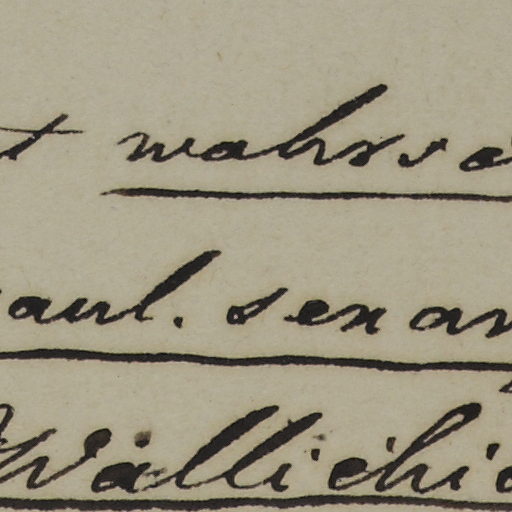 t wahrsc
aul. sexan
Wallichia